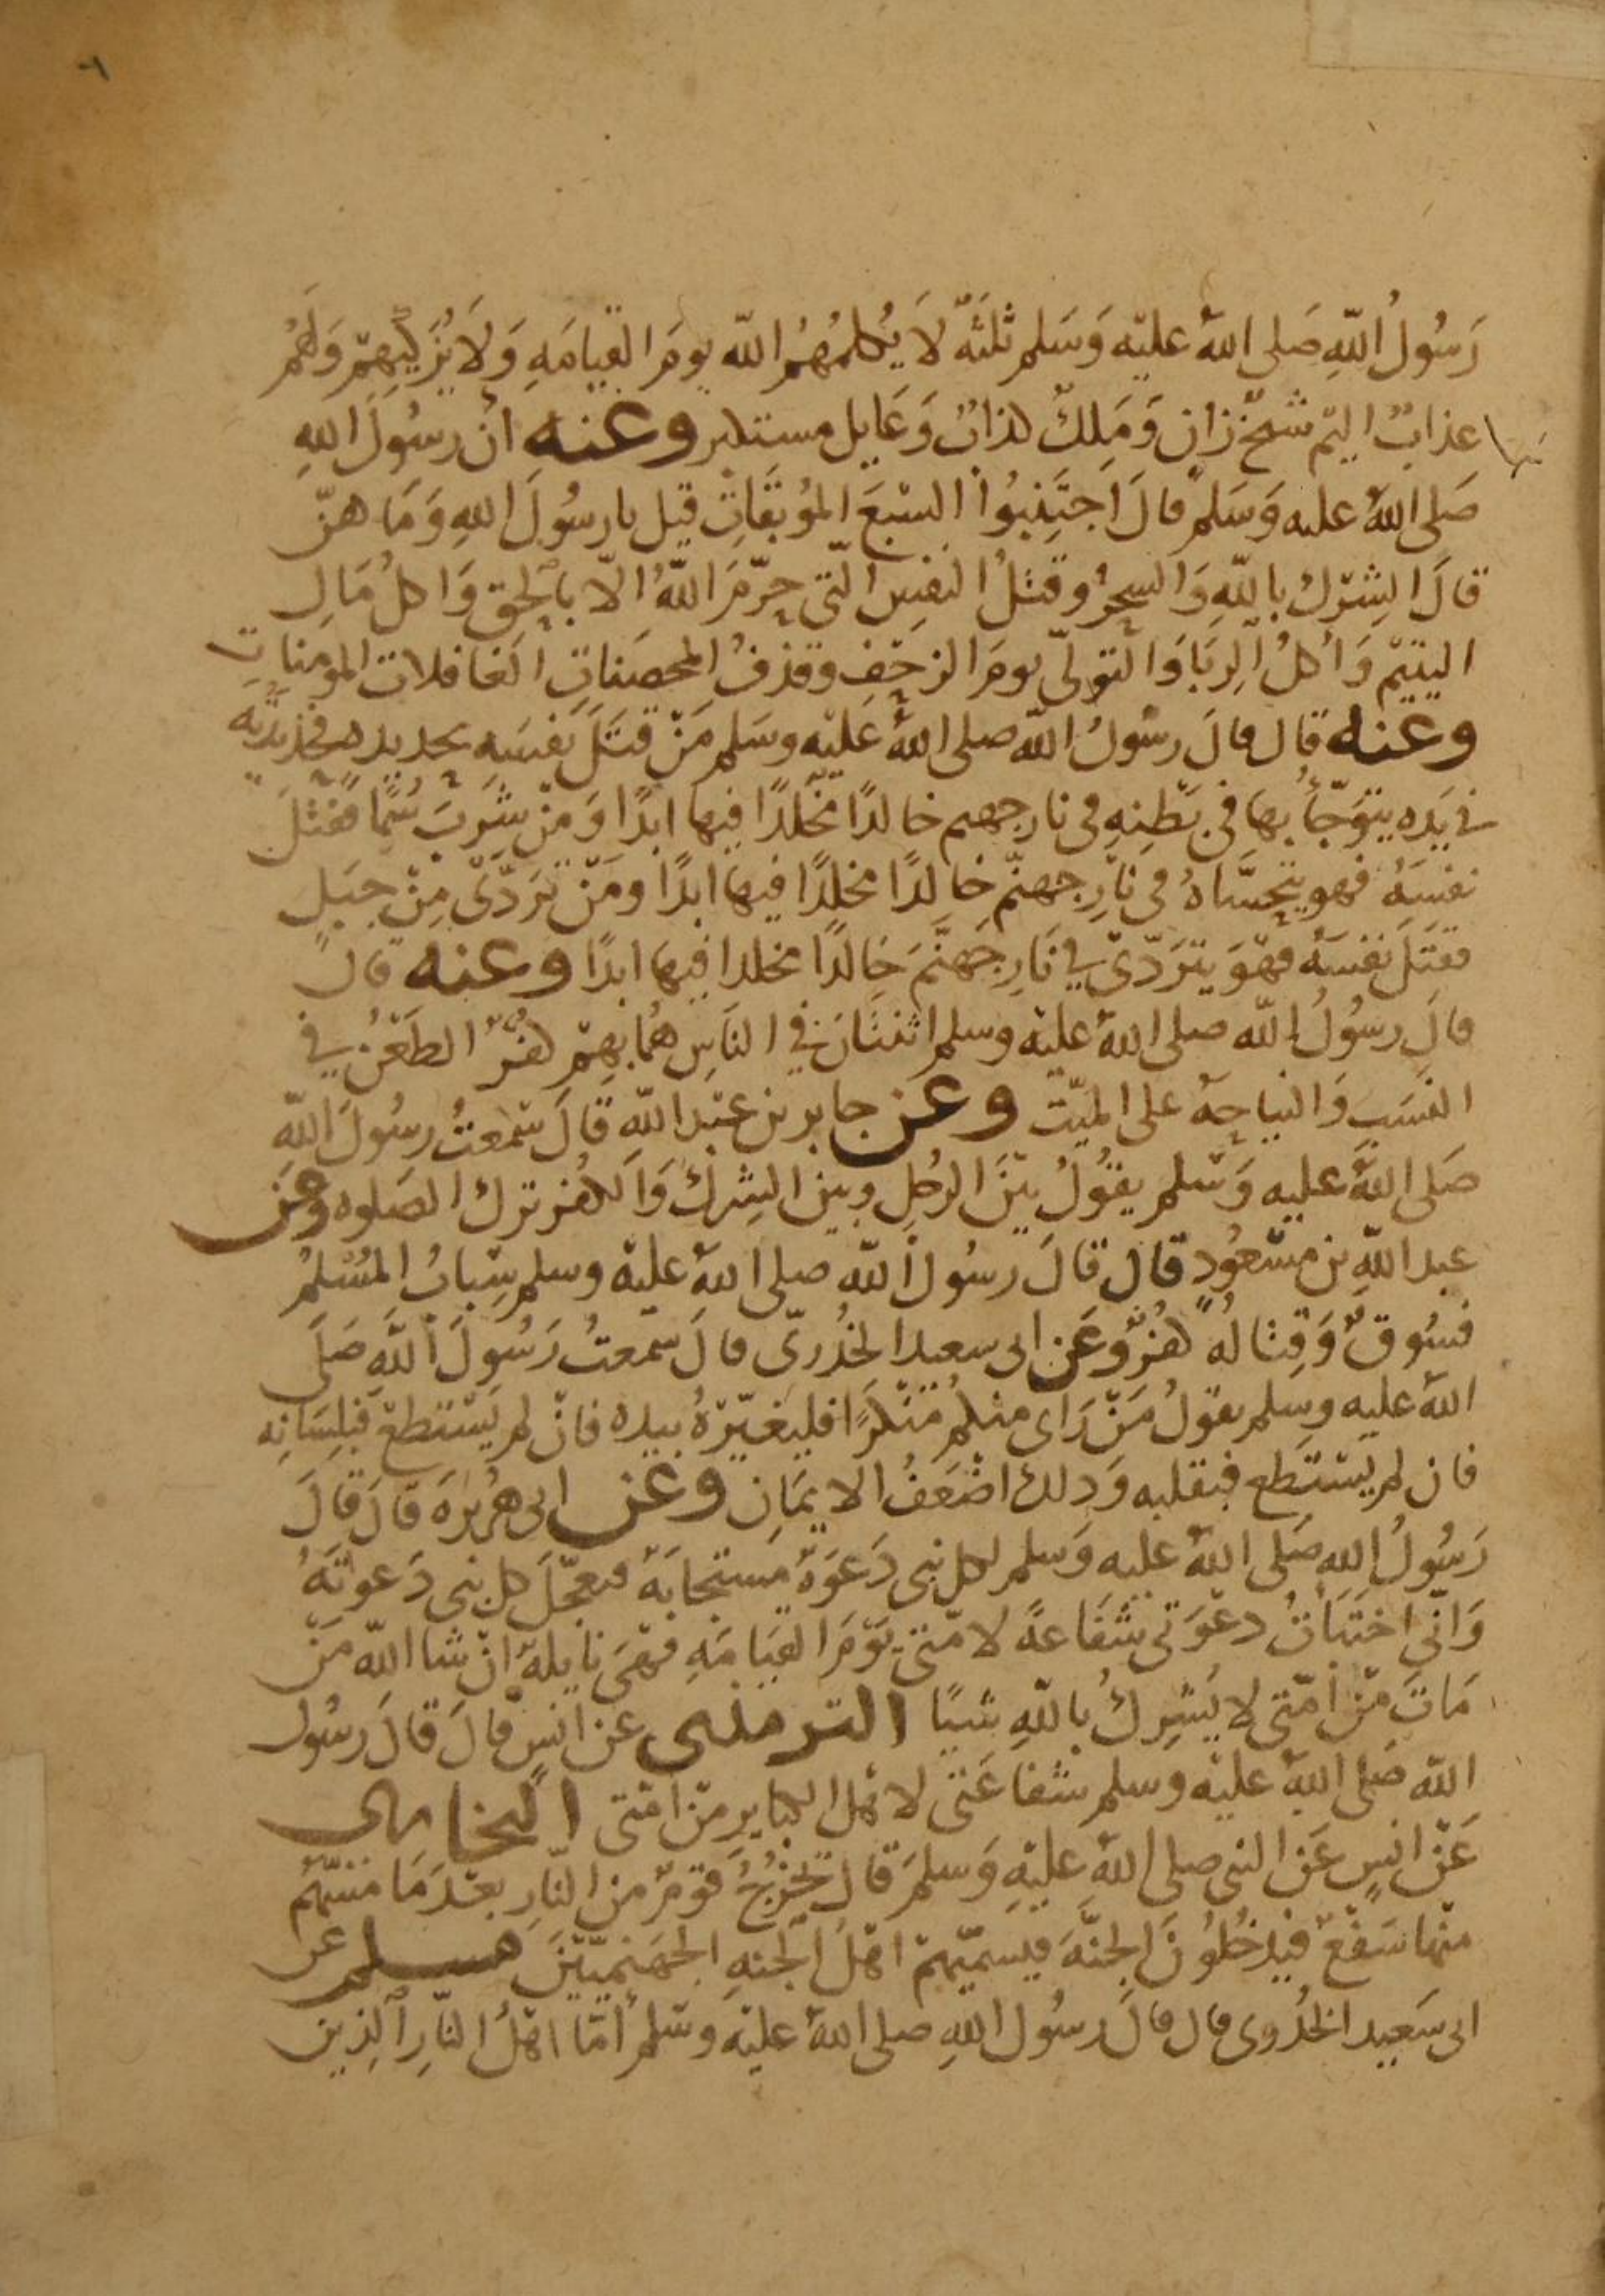 ٦
رَسُولُ اللهِ صَلى اللهُ عليْه وَسَلم ثلثَةٌ لَا يُكلمُهُمُ الله يومَ القيامَهِ وَلَا يُزَكِّيهِمْ وَلَهُمْ
عذابٌ اليْم شيْخٌ زانٍ وَمَلِكٌ كذابٌ وَعَايل مستكبر وعنه انّ رسُولَ اللهِ
صَلى اللهُ عليه وَسَلمْ قالَ اجتَنِبُوا السَّبعَ المُوبقَاتِ قيل يا رسُولَ اللهِ وَمَا هنّ
قالَ الشِرْك باللهِ وَالسِحرُ وقتلُ النفسِ التى حرّمَ اللهُ الّا بالحق وَاكلُ مَالِ
اليتيْم وَأكلُ الرِبَا وَالتولّى يومَ الزحْفِ وقذفُ المحصَناتِ الغافلات المومنات
وعنه قال قالَ رسُولُ الله صلى اللهُ عَليْه وسَلم مَنْ قتَلَ نفسَه بحديدهٍ فحديدَتُه
في يَده يتوَجّأُ بها فى بَطنِهِ فى نار جهنم خالدًا مخلّدًا فيها ابدًا وَمَنْ شرِبَ سُمًّا فقتَلَ
نفسَهُ فهو يتحسَّاهُ فى نَارِ جهنّم خالدًا مخلدًا فيها ابدًا ومَنْ تَردّى مِنْ جبَلٍ
فقتَلَ نفسَهُ فهْوَ يتَردّىْ في نَارِ جَهنَّمَ خالدًا مخلدا فيها ابدًا وعنه قال
قالَ رسُولُ الله صلى اللهُ عليْه وسلم اثنتَانِ في النَاسِ هُمَا بهِمْ كفرٌ الطَعْنُ في
النسَبِ وَالنياحَةُ على الميّت وعن جابر بن عبْد الله قالَ سَمعتُ رسُولَ الله
صَلى اللهُ عليه وَسَلم يقُولُ بيْنَ الرجُلِ وبين الشِركِ وَالكفر ترك الصَلوه وعن
عبد اللهِ بن مسْعُودٍ قال قالَ رسُولُ الله صلى اللهُ عليْه وسلم سِبابُ المسْلمُ
فسُوقٌ وَقِتالُهُ كفرٌ وعَن ابى سعيد الخدُريّ قالَ سمعتُ رَسُولَ اللهِ صَلَى
اللهُ عليه وسلم يقولُ مَنْ رَاى منكمُ منْكَرًا فليغيّرْهُ بيده فانْ لم يَستَطعْ فبلِسَانِه
فان لم يَستَطع فبقلبه وَذلك اضْعَفُ الايمَانِ وعن ابى هُريْرَهَ قالَ قالَ
رَسُولُ اللهِ صَلى اللهُ عليه وَسَلم لكل نبى دَعوَةٌ مستجابَةٌ فتعجّلَ كل نبى دَعوتَهُ
وَانّي اختَبَاتُ دعْوَتى شفَاعةً لامّتى يَوْمَ القيَامَهِ فهْىَ نايلةٌ انْ شا الله مَنْ
مَاتَ مِنْ امّتى لا يُشرِكُ باللهِ شيًا الترمذى عن انسٍ قالَ قالَ رسُول
الله صَلى اللهُ عليْه وسلم شفاعَتى لاهْل الكبايرِ مِنْ امّتى البخارى
عَنْ انسٍ عَن النبى صلى اللهُ عليْهِ وَسلمَ قال يخرُجُ قوْمٌ من النّارِ بعْدَ مَا مَسّهُمْ
منْها سَفْعٌ فيدخلُونَ الجنّهَ فيسمّيْهمْ اهْلُ الجَنهِ الجهَنمِيّيْنَ مسلم عن
ابى سَعيد الخدُرى قال قالَ رسُول اللهِ صلى اللهُ عليْه وسَلم أمّا اهْلُ النّارِ الذين